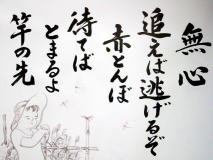 無心
追えば逃げるぞ
赤とんぼ
待てば
とまるよ
竿の先